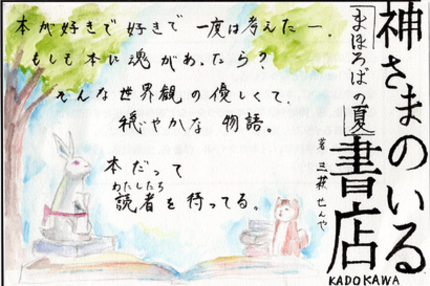 神さまのいる書店
まほろばの夏
著 三萩せんや
KADOKAWA
本が好きで 好きで 一度は考えたー。
もしも本に魂があったら?
そんな世界観の優しくて、
穏やかな 物語。
本だって
読者を待ってる。
わたしたち